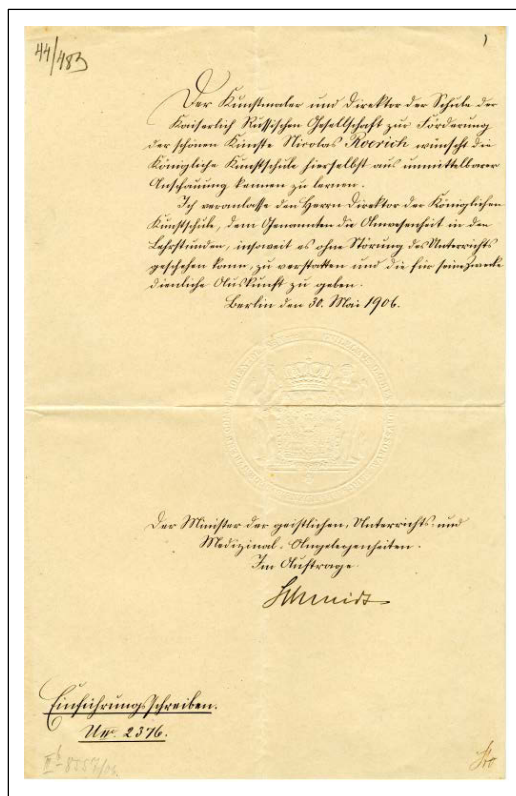 44/483
Der Kunstmaler und Direktor der Schule der
Kaiserlich Russischen Gesellschaft zur Förderung
der schönen Künste Nicolas Roerich wünscht die
Königliche Kunstschule hierselbst aus unmittelbarer
Anschauung kennen zu lernen.
Ich veranlasse den Herrn Direktor der Königlichen
Kunstschule, dem Genannten die Anwesenheit in den
Lehrstunden, insoweit es ohne Störung des Unterrichts
geschehen kann, zu verstatten und die für seine Zwecke
dienliche Auskunft zu geben.
Berlin den 30. Mai 1906.
Der Minister der geistlichen, Unterrichts- und
Medizinal-Angelegenheiten.
Im Auftrage
Schmidt
Einführungsschreiben.
2376.